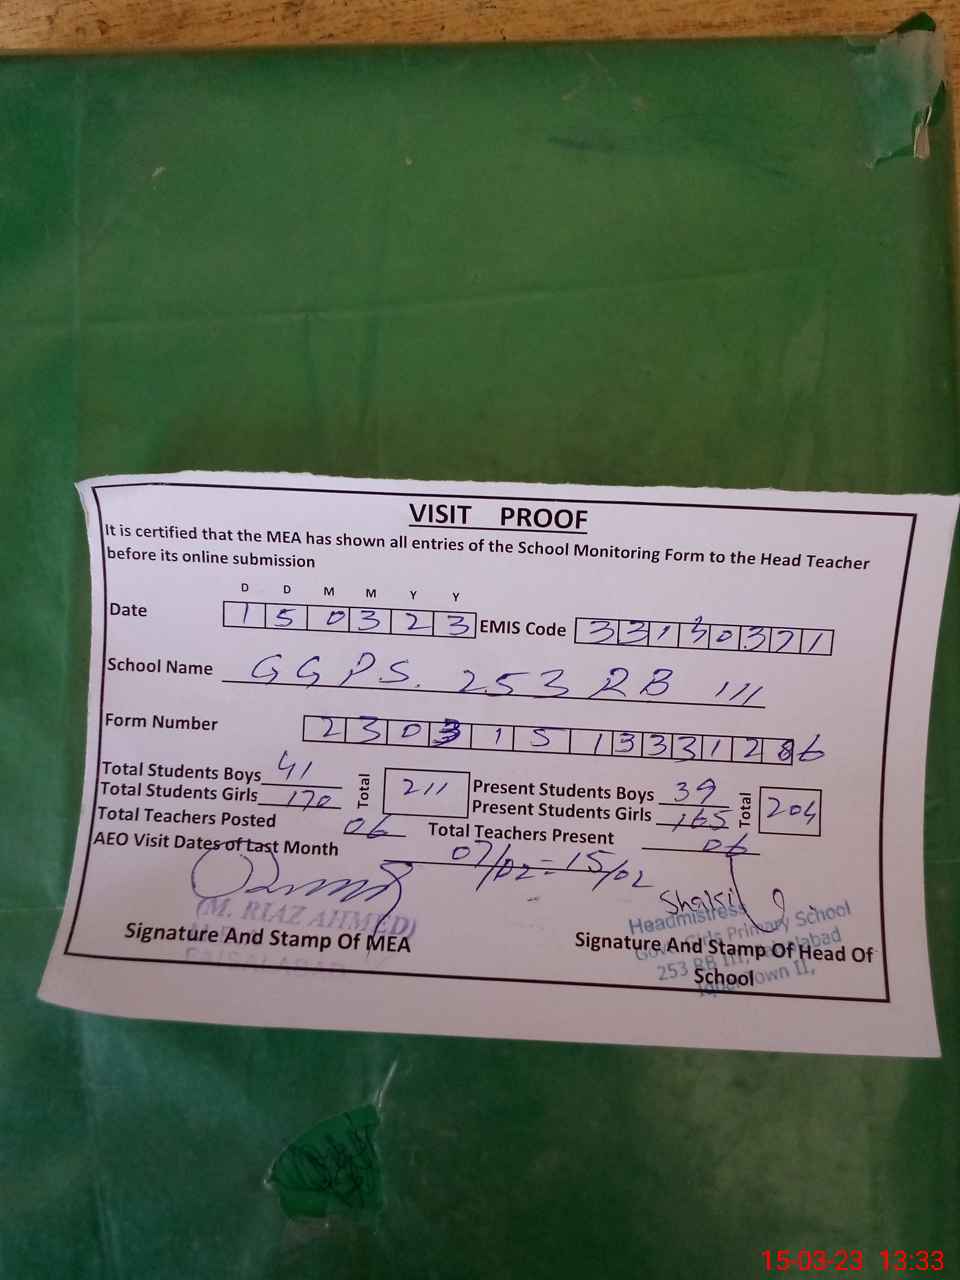 VISIT PROOF
It is certified that the MEA has shown all entries of the School Monitoring Form to the Head Teacher
before its online submission
D D M M Y Y
Date 1 5 0 3 2 3 EMIS Code 3 3 1 3 0 3 2 1
School Name GGPS. 253 RB III
Form Number 2 3 0 3 1 5 1 3 3 3 1 2 8 6
Total Students Boys 41 Total 211 Present Students Boys 39 Total 204
Total Students Girls 170 Present Students Girls 165
Total Teachers Posted 06 Total Teachers Present 06
AEO Visit Dates of Last Month 07/02 = 15/02
(M. RIAZ AHMED)
FAISALABAD
Signature And Stamp Of MEA
Headmistress
Girls Primary School
253 RB III,
Town II,
Signature And Stamp Of Head Of
School
15-03-23 13:33